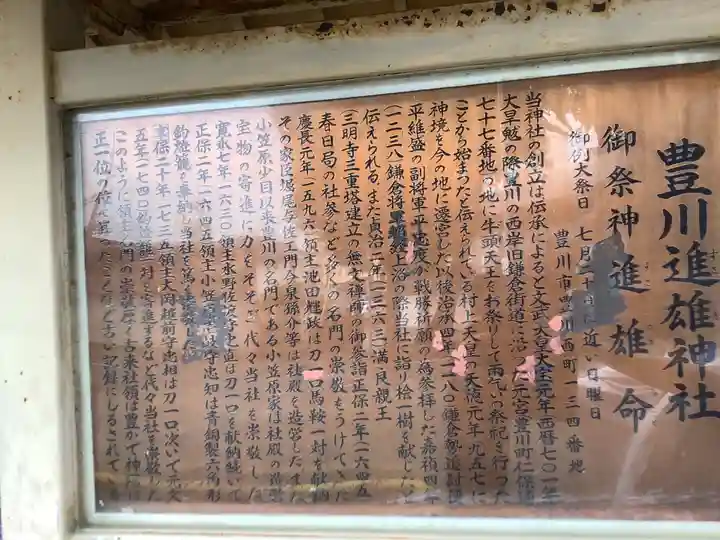 豊川進雄神社
御祭神 進雄命
豊川市豊川西町一三四番地
御例大祭日 七月二十日に近い日曜日
当神社の創立は伝承によると文武天皇大宝元年西暦七〇一年
大旱魃の際豊川の西岸旧鎌倉街道に沿った元宮豊川町仁保通
七十七番地の地に牛頭天王をお祭りして雨乞いの祭祀を行った
ことから始まったと伝えられている村上天皇の天徳元年九五七に
神境を今の地に遷宮した以後治承四年一一八〇鎌倉勢追討使
平維盛の副将軍平忠度が戦勝祈願の為参拝した嘉禎四年
(一二三八)鎌倉将軍頼経上洛の際当社に詣り桧一樹を献じたと
伝えられるまた貞治二年(一三六三)満良親王
三明寺三重塔建立の無文禅師の御参詣正保二年(一六四五
春日局の社参など の名門の崇敬をうけていた
慶長元年一五九六領主池田輝政は刀一口馬鞍一対を献納
その家臣堀尾与佐エ門今泉孫介等は社殿を造営したまた
小笠原少目以来豊川の名門である小笠原家は社殿の造営
宝物の寄進に力をそそぎ代々当社を崇敬した
寛永七年一六三〇領主水野佐渡守忠直は刀一口を献納続いて
正保二年一六四五領主小笠原壱岐守忠知は青銅製六角形
釣燈籠を奉納し当社を篤く崇敬した
享保二十年一七三五領主大岡越前守忠相は刀一口次いで元文
五年一七四〇 一対を寄進するなど代々当社を崇敬した
このように領主名門の崇敬厚く古来社領は豊かで神
正一位の位 ったことなど古い記録にしるされて